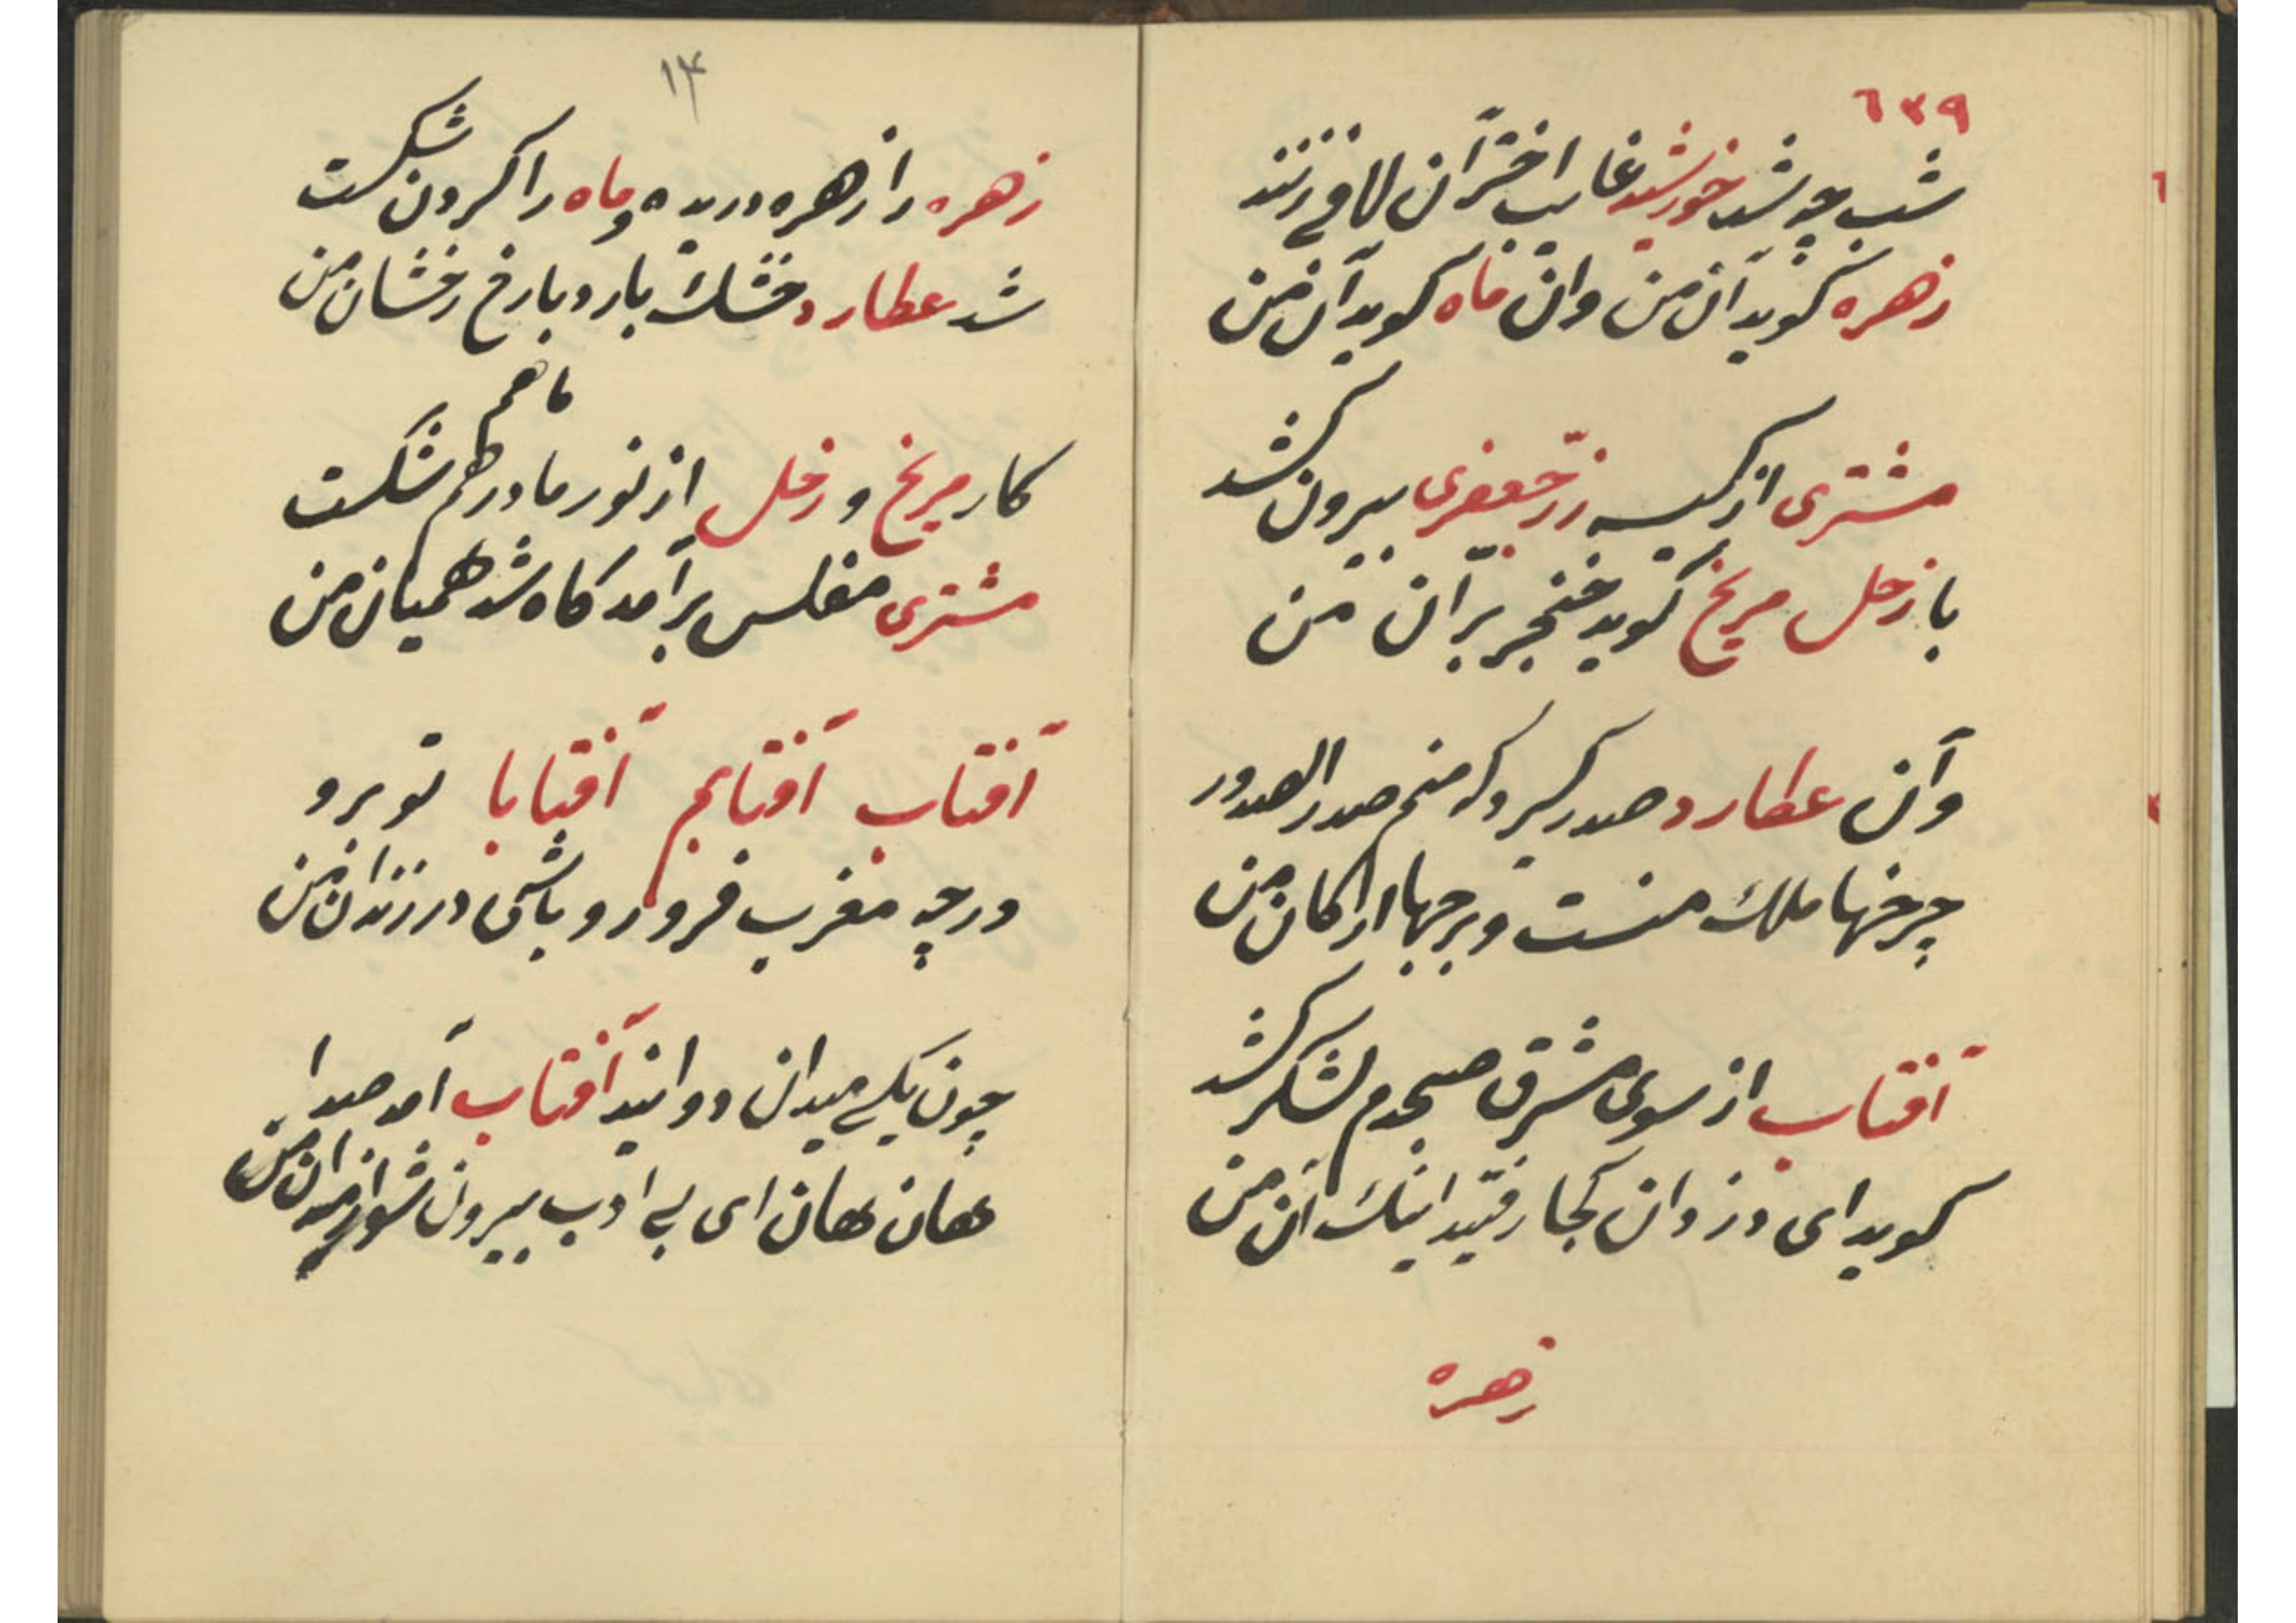 ٦٣٩
شب چو شد خورشید غایب اخترآن لافی زنند
زهره گوید آن من وان ماه گوید آن من
مشتری از کیسه زرّ جعفری بیرون کشد
با زحل مریخ گوید خنجر برّآن من
وآن عطارد صدر گیرد که منم صدر الصدور
چرخها ملك منست و برجها ارکان من
آفتاب از سوی مشرق صبحدم لشکر کشد
گوید ای دزدان کجا رفتید اینك آن من
زهره
۱۴
زهره را زهره دریده و ماه را گردون شکست
شد عطارد خشك بارد با رخ رخشان من
ماهم
کار مریخ و زحل از نور ما درهم شکست
مشتری مفلس برآمد کاه شد همیان من
آفتاب آفتابم آفتابا تو برو
در چه مغرب فرو رو باش در زندان من
چون یکی میدان دوانید آفتاب آمد صدا
هان هان ای بی ادب بیرون شو از میدان من